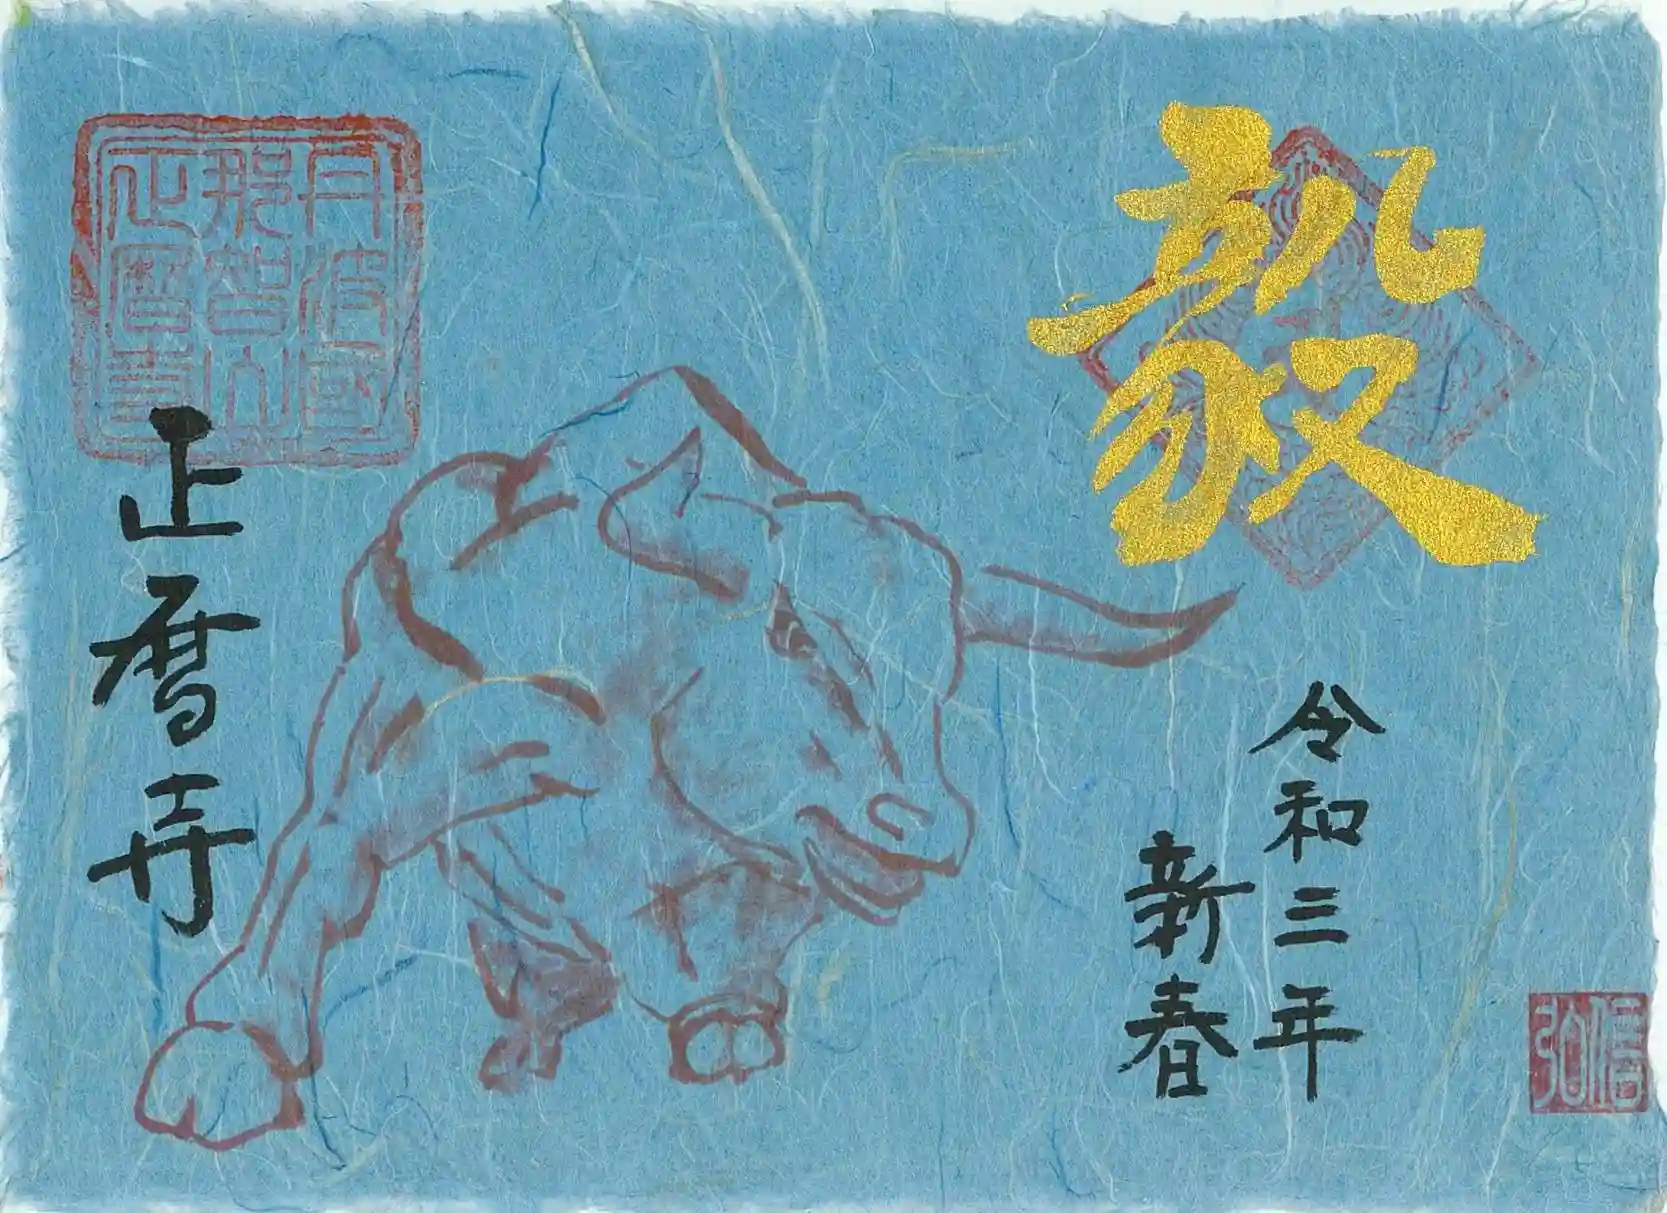 毅
令和三年
新春
丹波國
那智山
正暦寺
正暦寺